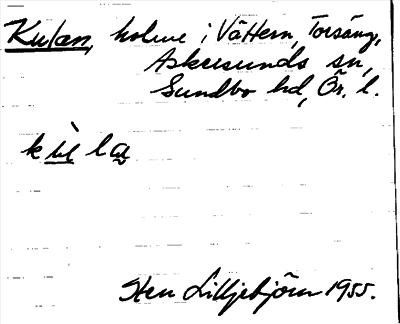 Kulan, holme i Vättern, Torsäng,
Askersunds sn,
Sundbo hd, Ör. l.
Sten Lilljebjörn 1955.